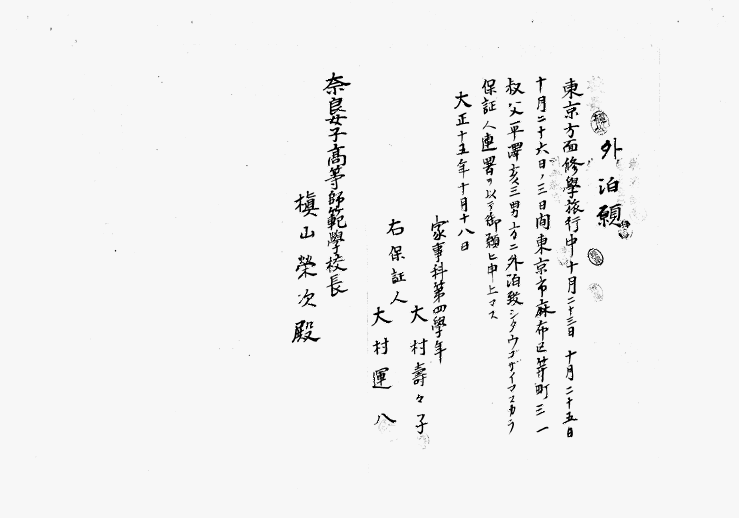 外泊願
東京方面修學旅行中十月二十三日十月二十五日
十月二十六日ノ三日間東京市麻布區笄町三一
叔父平澤亥三男方ニ外泊致シタウゴザイマスカラ
保証人連署ヲ以テ御願ヒ申上マス
大正十五年十月十八日
家事科第四學年
大村壽々子
右保証人
大村運八
奈良女子高等師範學校長
槇山榮次殿